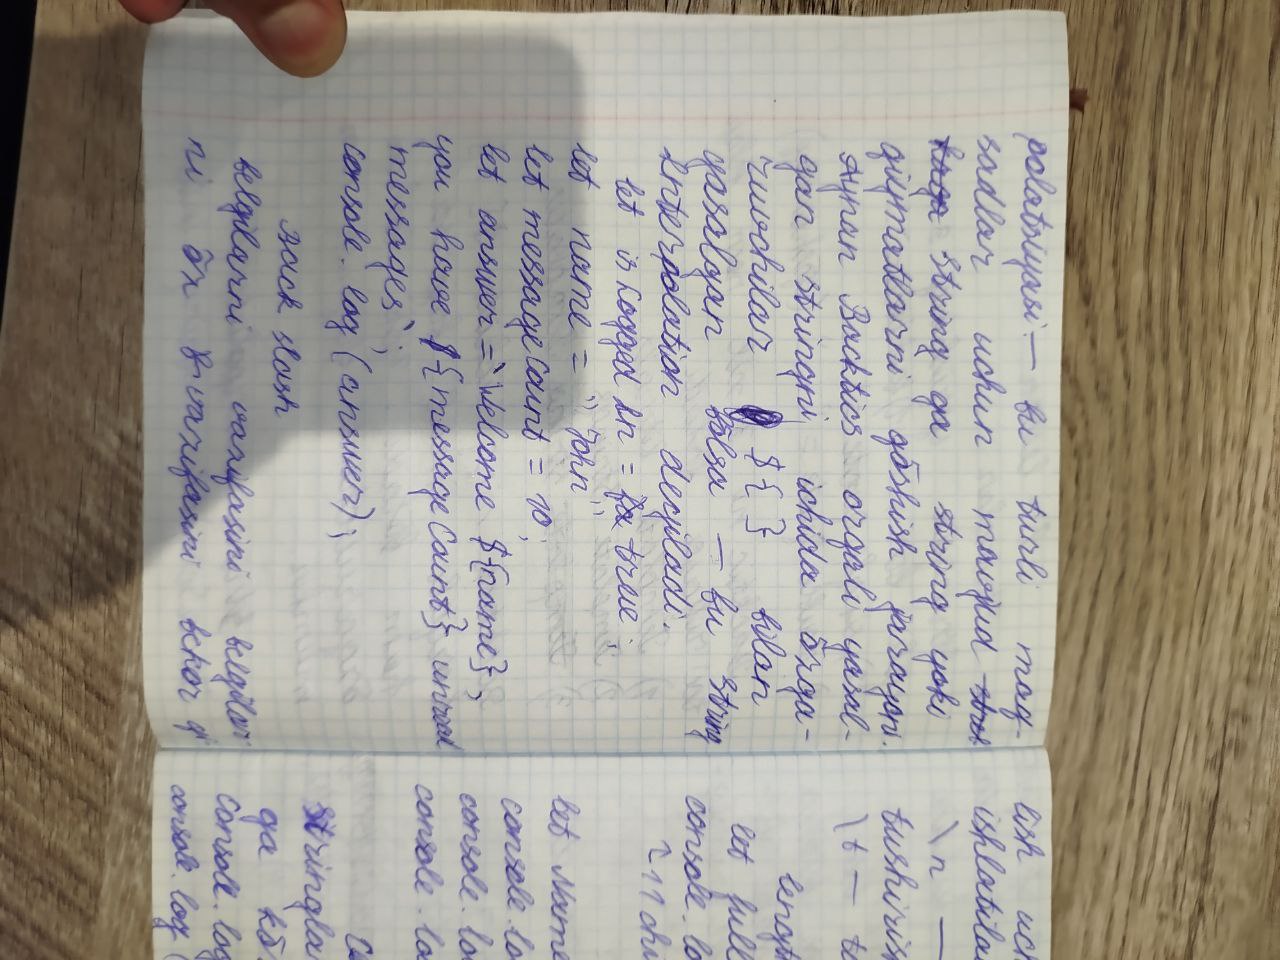 polatsiyasi — bu turli maq-
sadlar uchun mavjud
string ga string yoki
qiymatlarni qo̊shish jarayoni.
Aynan Backtics orqali yasal-
gan stringni ichida o̊zga-
ruvchilar ${ } bilan
yasalgan bo̊lsa — bu string
Interpolation deyiladi.
let is Logged In = true;
let name = "John";
let messageCount = 10;
let answer = `Welcome ${name},
you have ${messageCount} unread
messages`;
console.log (answer);
Back slash
belgilarni vazifasini belgilar
ni o̊z vazifasini bekor q
lish uch
ishlatila
\n —
tushirish
\t — t
lengt
let full
console.lo
let Name
console.lo
console.lo
console.lo
Stringla
ga ko̊
console.log
console.log (